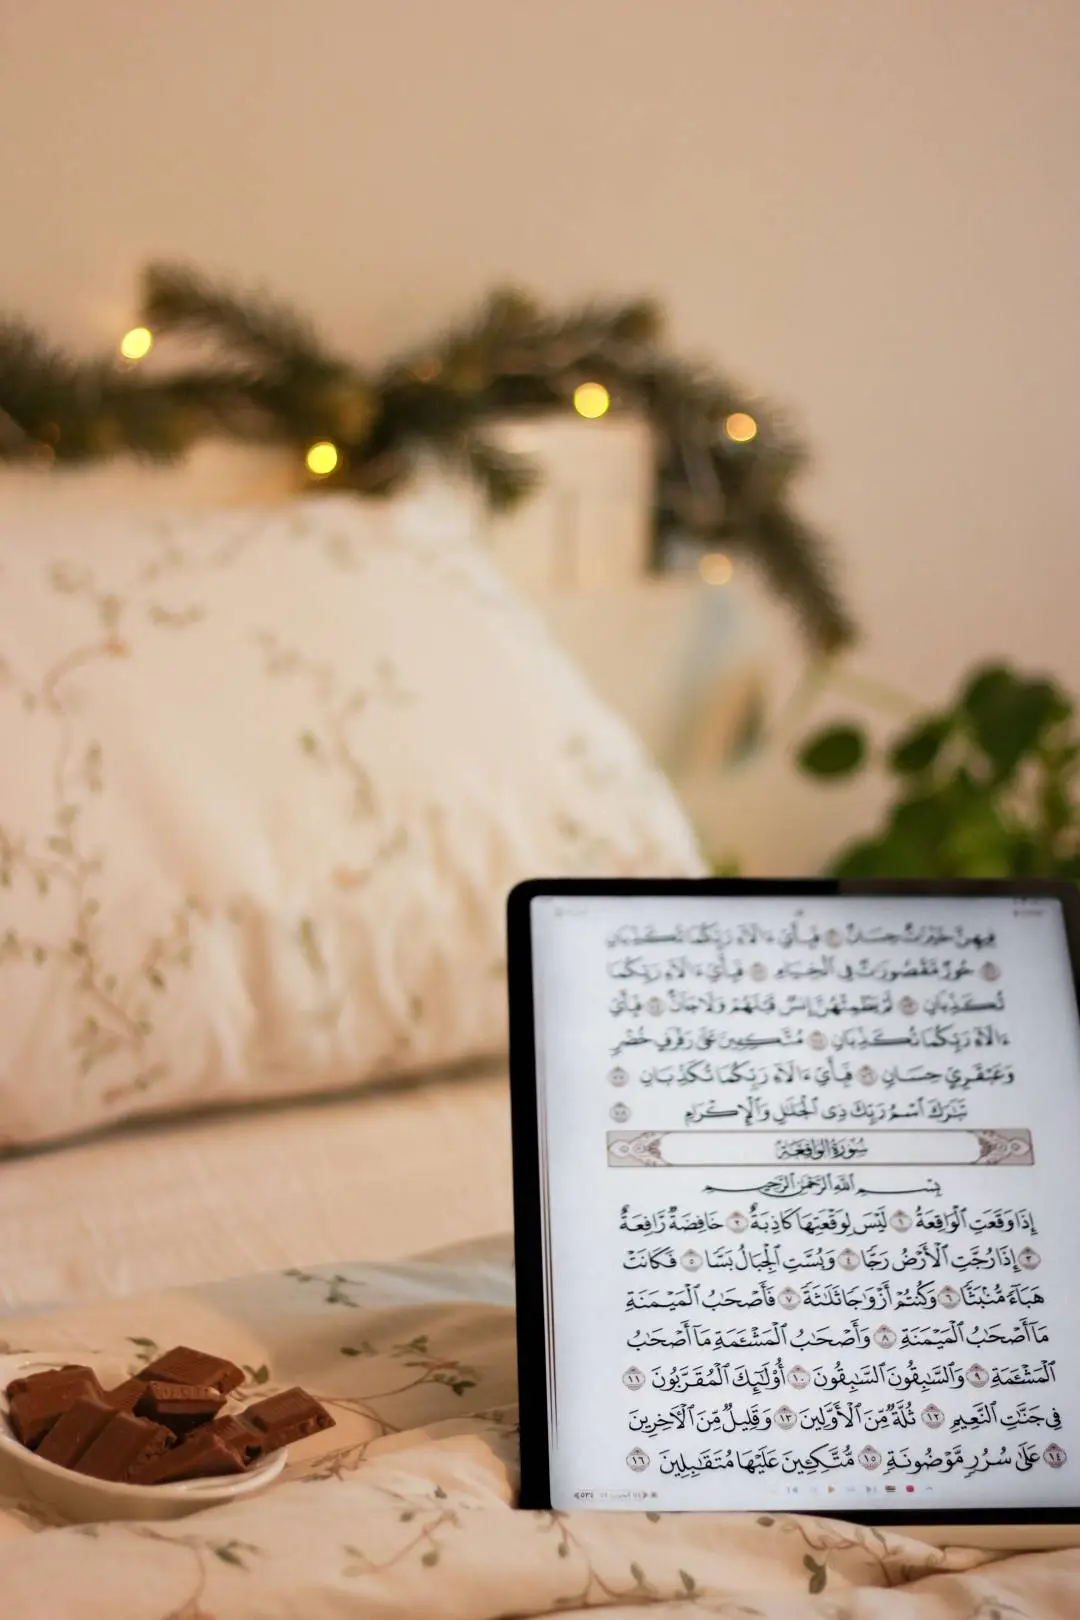 فِيهِنَّ خَيْرَاتٌ حِسَانٌ ٧٠ فَبِأَيِّ ءَالَآءِ رَبِّكُمَا تُكَذِّبَانِ
٧١ حُورٌ مَّقْصُورَاتٌ فِي ٱلْخِيَامِ ٧٢ فَبِأَيِّ ءَالَآءِ رَبِّكُمَا
تُكَذِّبَانِ ٧٣ لَمْ يَطْمِثْهُنَّ إِنسٌ قَبْلَهُمْ وَلَا جَآنٌّ ٧٤ فَبِأَيِّ
ءَالَآءِ رَبِّكُمَا تُكَذِّبَانِ ٧٥ مُتَّكِـِٔينَ عَلَىٰ رَفْرَفٍ خُضْرٍ
وَعَبْقَرِيٍّ حِسَانٍ ٧٦ فَبِأَيِّ ءَالَآءِ رَبِّكُمَا تُكَذِّبَانِ ٧٧
تَبَٰرَكَ ٱسْمُ رَبِّكَ ذِى ٱلْجَلَٰلِ وَٱلْإِكْرَامِ ٧٨
سُورَةُ الوَاقِعَةِ
بِسْمِ ٱللَّهِ ٱلرَّحْمَٰنِ ٱلرَّحِيمِ
إِذَا وَقَعَتِ ٱلْوَاقِعَةُ ١ لَيْسَ لِوَقْعَتِهَا كَاذِبَةٌ ٢ خَافِضَةٌ رَّافِعَةٌ
٣ إِذَا رُجَّتِ ٱلْأَرْضُ رَجًّا ٤ وَبُسَّتِ ٱلْجِبَالُ بَسًّا ٥ فَكَانَتْ
هَبَآءً مُّنۢبَثًّا ٦ وَكُنتُمْ أَزْوَٰجًا ثَلَٰثَةً ٧ فَأَصْحَٰبُ ٱلْمَيْمَنَةِ
مَآ أَصْحَٰبُ ٱلْمَيْمَنَةِ ٨ وَأَصْحَٰبُ ٱلْمَشْـَٔمَةِ مَآ أَصْحَٰبُ
ٱلْمَشْـَٔمَةِ ٩ وَٱلسَّٰبِقُونَ ٱلسَّٰبِقُونَ ١٠ أُو۟لَٰٓئِكَ ٱلْمُقَرَّبُونَ ١١
فِى جَنَّٰتِ ٱلنَّعِيمِ ١٢ ثُلَّةٌ مِّنَ ٱلْأَوَّلِينَ ١٣ وَقَلِيلٌ مِّنَ ٱلْـَٔاخِرِينَ
١٤ عَلَىٰ سُرُرٍ مَّوْضُونَةٍ ١٥ مُّتَّكِـِٔينَ عَلَيْهَا مُتَقَٰبِلِينَ ١٦